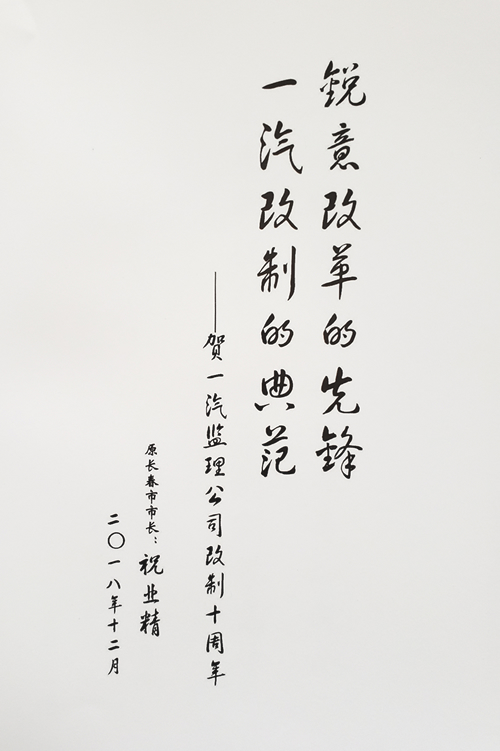 锐意改革的先锋
一汽改制的典范
——贺一汽监理公司改制十周年
原长春市市长：祝业精
二〇一八年十二月